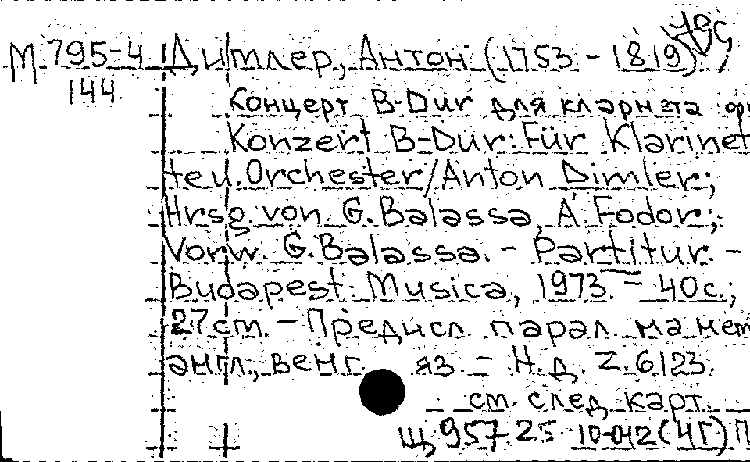 М 795-4 Димлер, Антон (1753-1819)
144
Концерт B-Dur для кларнета
Konzert B-Dur: Für Klarinet
te u. Orchester/Anton Dimler;
Hrsg. von G. Balassa, A. Fodor;
Vorw. G. Balassa. - Partitur. -
Budapest: Musica, 1973. - 40 с.;
27 cm. - Предисл. парал. на нем.
англ., венг. яз. - Н. д. Z. 6123.
см. след. карт.
Щ 957 25 10-042 (4Г) П